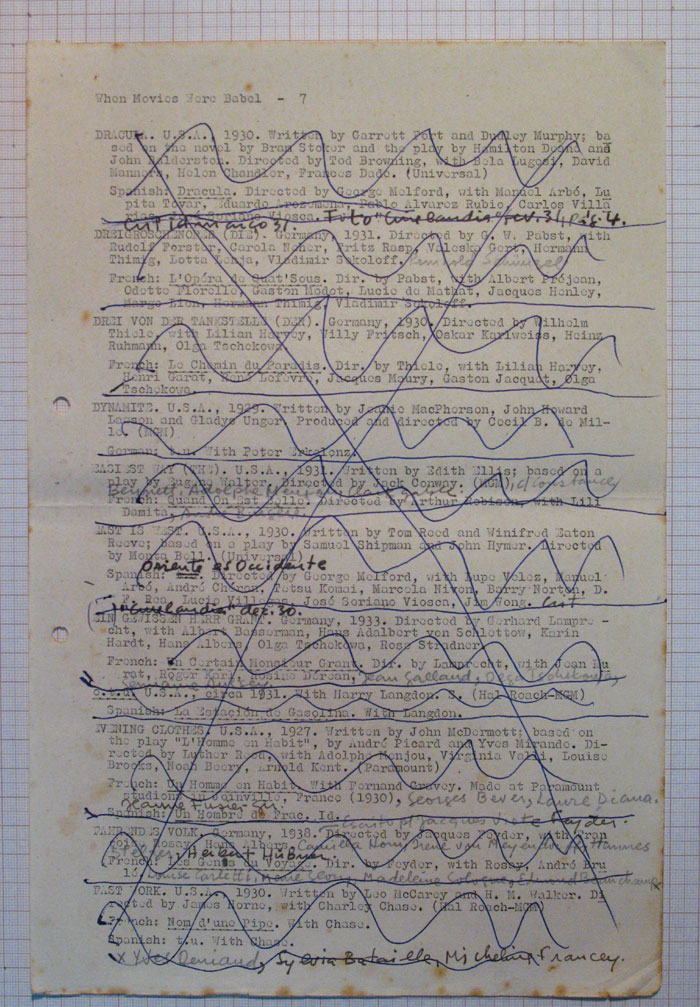 When Movies Were Babel - 7
DRACULA. U.S.A., 1930. Written by Garrett Fort and Dudley Murphy; ba
sed on the novel by Bram Stoker and the play by Hamilton Deane and
John Balderston. Directed by Tod Browning, with Bela Lugosi, David
Manners, Helen Chandler, Frances Dade. (Universal)
Spanish: Dracula. Directed by George Melford, with Manuel Arbó, Lu
pita Tovar, Eduardo Arozamena, Pablo Alvarez Rubio, Carlos Villa
Soriano Viosca. Foto "Cinelandia" pág 4.
DREIGROSCHENOPER (DIE). Germany, 1931. Directed by G. W. Pabst, with
Rudolf Forster, Carola Neher, Fritz Rasp, Valeska Gert, Hermann
Thimig, Lotta Lenja, Vladimir Sokoloff,
French: L'Opéra de Quat'Sous. Dir. by Pabst, with Albert Préjean,
Odette Florelle, Gaston Modot, Lucie de Mathat, Jacques Henley,
Margo Lion, Hermann Thimig, Vladimir Sokoloff.
DREI VON DER TANKSTELLE (DER). Germany, 1930. Directed by Wilhelm
Thiele, with Lilian Harvey, Willy Fritsch, Oskar Karlweiss, Heinz
Ruhmann, Olga Tschekowa.
French: Le Chemin du Paradis. Dir. by Thiele, with Lilian Harvey,
Henri Garat, René Lefèvre, Jacques Maury, Gaston Jacquet, Olga
Tschekowa.
DYNAMITE. U.S.A., 1929. Written by Jeanie MacPherson, John Howard
Lawson and Gladys Unger. Produced and directed by Cecil B. de Mil-
le. (MGM)
German: t.u. With Peter Erkelenz.
EASIEST WAY (THE). U.S.A., 1931. Written by Edith Ellis; based on a
play by Eugene Walter. Directed by Jack Conway. (MGM), c/Constance
Bennett, Adolphe Menjou, Clark Gable.
French: Quand On Est Belle. Directed by Arthur Robison, with Lili
Damita,
EAST IS WEST. U.S.A., 1930. Written by Tom Reed and Winifred Eaton
Reeve; based on a play by Samuel Shipman and John Hymer. Directed
by Monta Bell. (Universal)
Oriente es Occidente
Spanish: Directed by George Melford, with Lupe Velez, Manuel
Arbó, André Chéron, Tetsu Komai, Marcela Nivon, Barry Norton, D.
F. Rea, Lucio Villegas, José Soriano Viosca, Jim Wong. Cast
"Cinelandia" dez. 30.
EIN GEWISSEN HERR GRAN. Germany, 1933. Directed by Gerhard Lampre -
cht, with Albert Basserman, Hans Adalbert von Schlettow, Karin
Hardt, Hans Albers, Olga Tschekowa, Rose Stradner.
French: Un Certain Monsieur Grant. Dir. by Lamprecht, with Jean Mu
rat, Roger Karl, Rosine Dérean, Jean Galland, Olga Tschekowa,
e.t.d. U.S.A., circa 1931. With Harry Langdon. S. (Hal Roach-MGM)
Spanish: La Estación de Gasolina. With Langdon.
EVENING CLOTHES. U.S.A., 1927. Written by John McDermott; based on
the play "L'Homme en Habit", by André Picard and Yves Mirande. Di-
rected by Luther Reed, with Adolphe Menjou, Virginia Valli, Louise
Brooks, Noah Beery, Arnold Kent. (Paramount)
French: Un Homme en Habit. With Fernand Gravey. Made at Paramount
studios in Joinville, France (1930), Georges Bever, Loure Diana.
Spanish: Un Hombre de Frac. Id.
FAHRENDES VOLK. Germany, 1938. Directed by Jacques Feyder, with Fran
çoise Rosay, Hans Albers, Camilla Horn, Irene von Meyendorff, Hannes
Stelzer, Herbert Hübner
French: Les Gens du Voyage. Dir. by Feyder, with Rosay, André Bru
lé, Louise Carletti, Madeleine Sologne,
FAST WORK. U.S.A., 1930. Written by Leo McCarey and H. M. Walker. Di
rected by James Horne, with Charley Chase. (Hal Roach-MGM)
French: Nom d'une Pipe. With Chase.
Spanish: t.u. With Chase.
x Yves Deniaud, Sylvia Bataille, Micheline Francey.